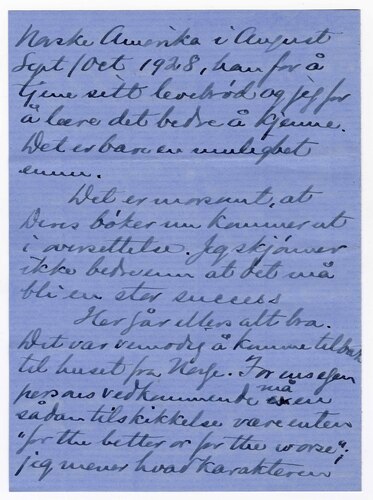 Norske Amerika i August
Sept/Oct 1928, han for å
tjene sitt levebrød og jeg for
å lære det bedre å kjenne.
Det er bare en mulighet
ennu.
Det er morsomt, at
Deres bøker nu kommer ut
i oversettelse. Jeg skjønner
ikke bedre enn at det må
bli en stor success
Her går ellers alt bra.
Det var vemodig å komme tilbake
til huset fra Norge. For ens egen
persons vedkommende må en
sådan tilskikkelse være enten
"for the better or for the worse";
jeg mener hvad karakteren